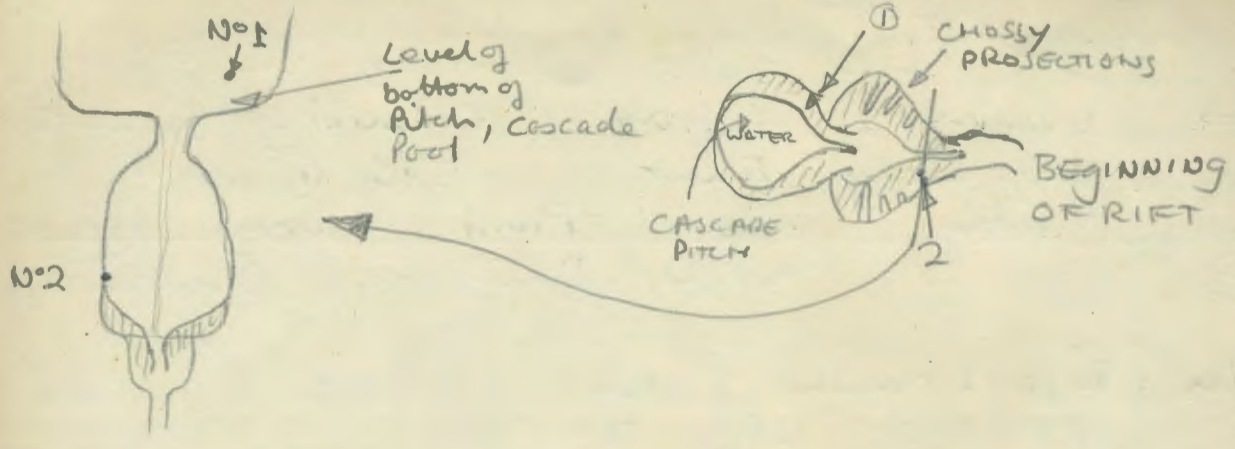 No1
Level of
bottom of
Pitch, Cascade
Pool
No2
①
CHOSSY
PROJECTIONS
WATER
CASCADE
PITCH
BEGINNING
OF RIFT
2